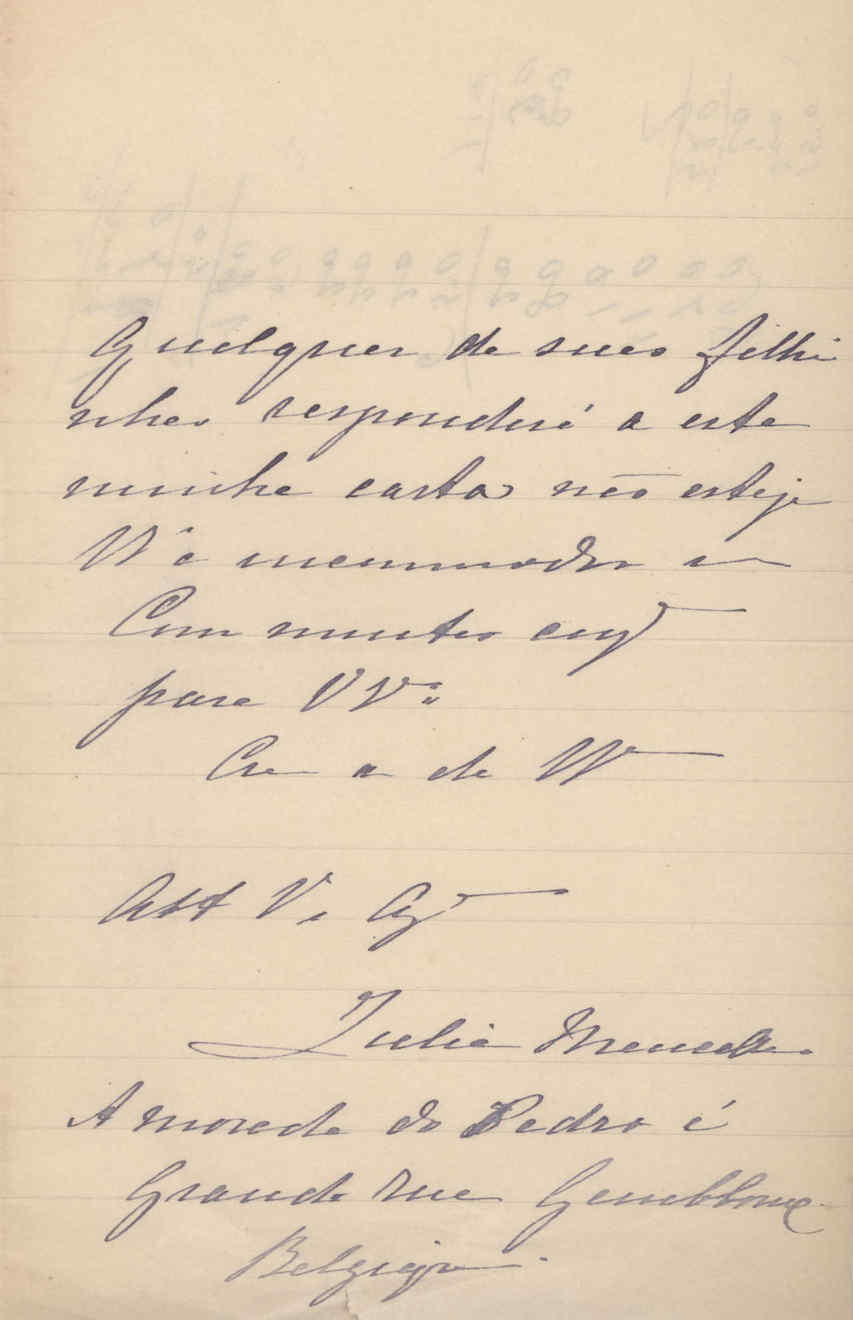 Qualquer de suas filhi
nhas responderá a esta
minha carta não esteja
V. Ex.ª incommodar
Com muitos
para VV.
de V.
Att V.
Julia
A morada do Pedro é
Grande rue Gembloux
Belgique.